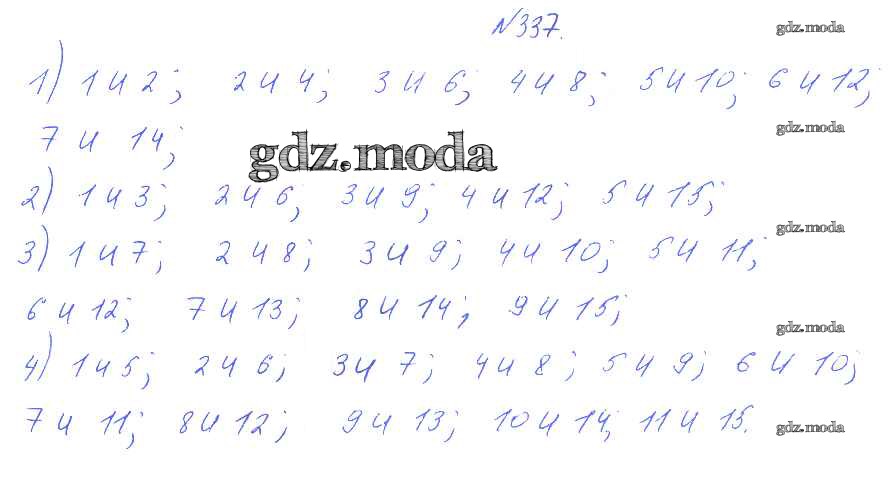 №337. gdz.moda
1) 1 и 2; 2 и 4; 3 и 6; 4 и 8; 5 и 10; 6 и 12;
7 и 14; gdz.moda
gdz.moda
2) 1 и 3; 2 и 6; 3 и 9; 4 и 12; 5 и 15;
gdz.moda
3) 1 и 7; 2 и 8; 3 и 9; 4 и 10; 5 и 11;
6 и 12; 7 и 13; 8 и 14; 9 и 15;
gdz.moda
4) 1 и 5; 2 и 6; 3 и 7; 4 и 8; 5 и 9; 6 и 10;
7 и 11; 8 и 12; 9 и 13; 10 и 14; 11 и 15.
gdz.moda